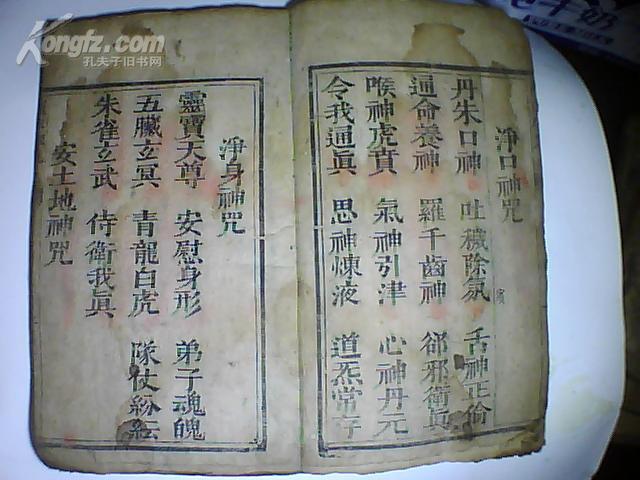 Kongfz.com
孔夫子旧书网
淨口神咒
丹朱口神 吐穢除氛 舌神正倫
通命養神 羅千齒神 郤邪衛眞
喉神虎賁 氣神引津 心神丹元
令我通眞 思神煉液 道炁常
淨身神咒
靈寶天尊 安慰身形 弟子魂魄
五臟玄冥 青龍白虎 隊仗紛紜
朱雀玄武 侍衛我眞
安土地神咒